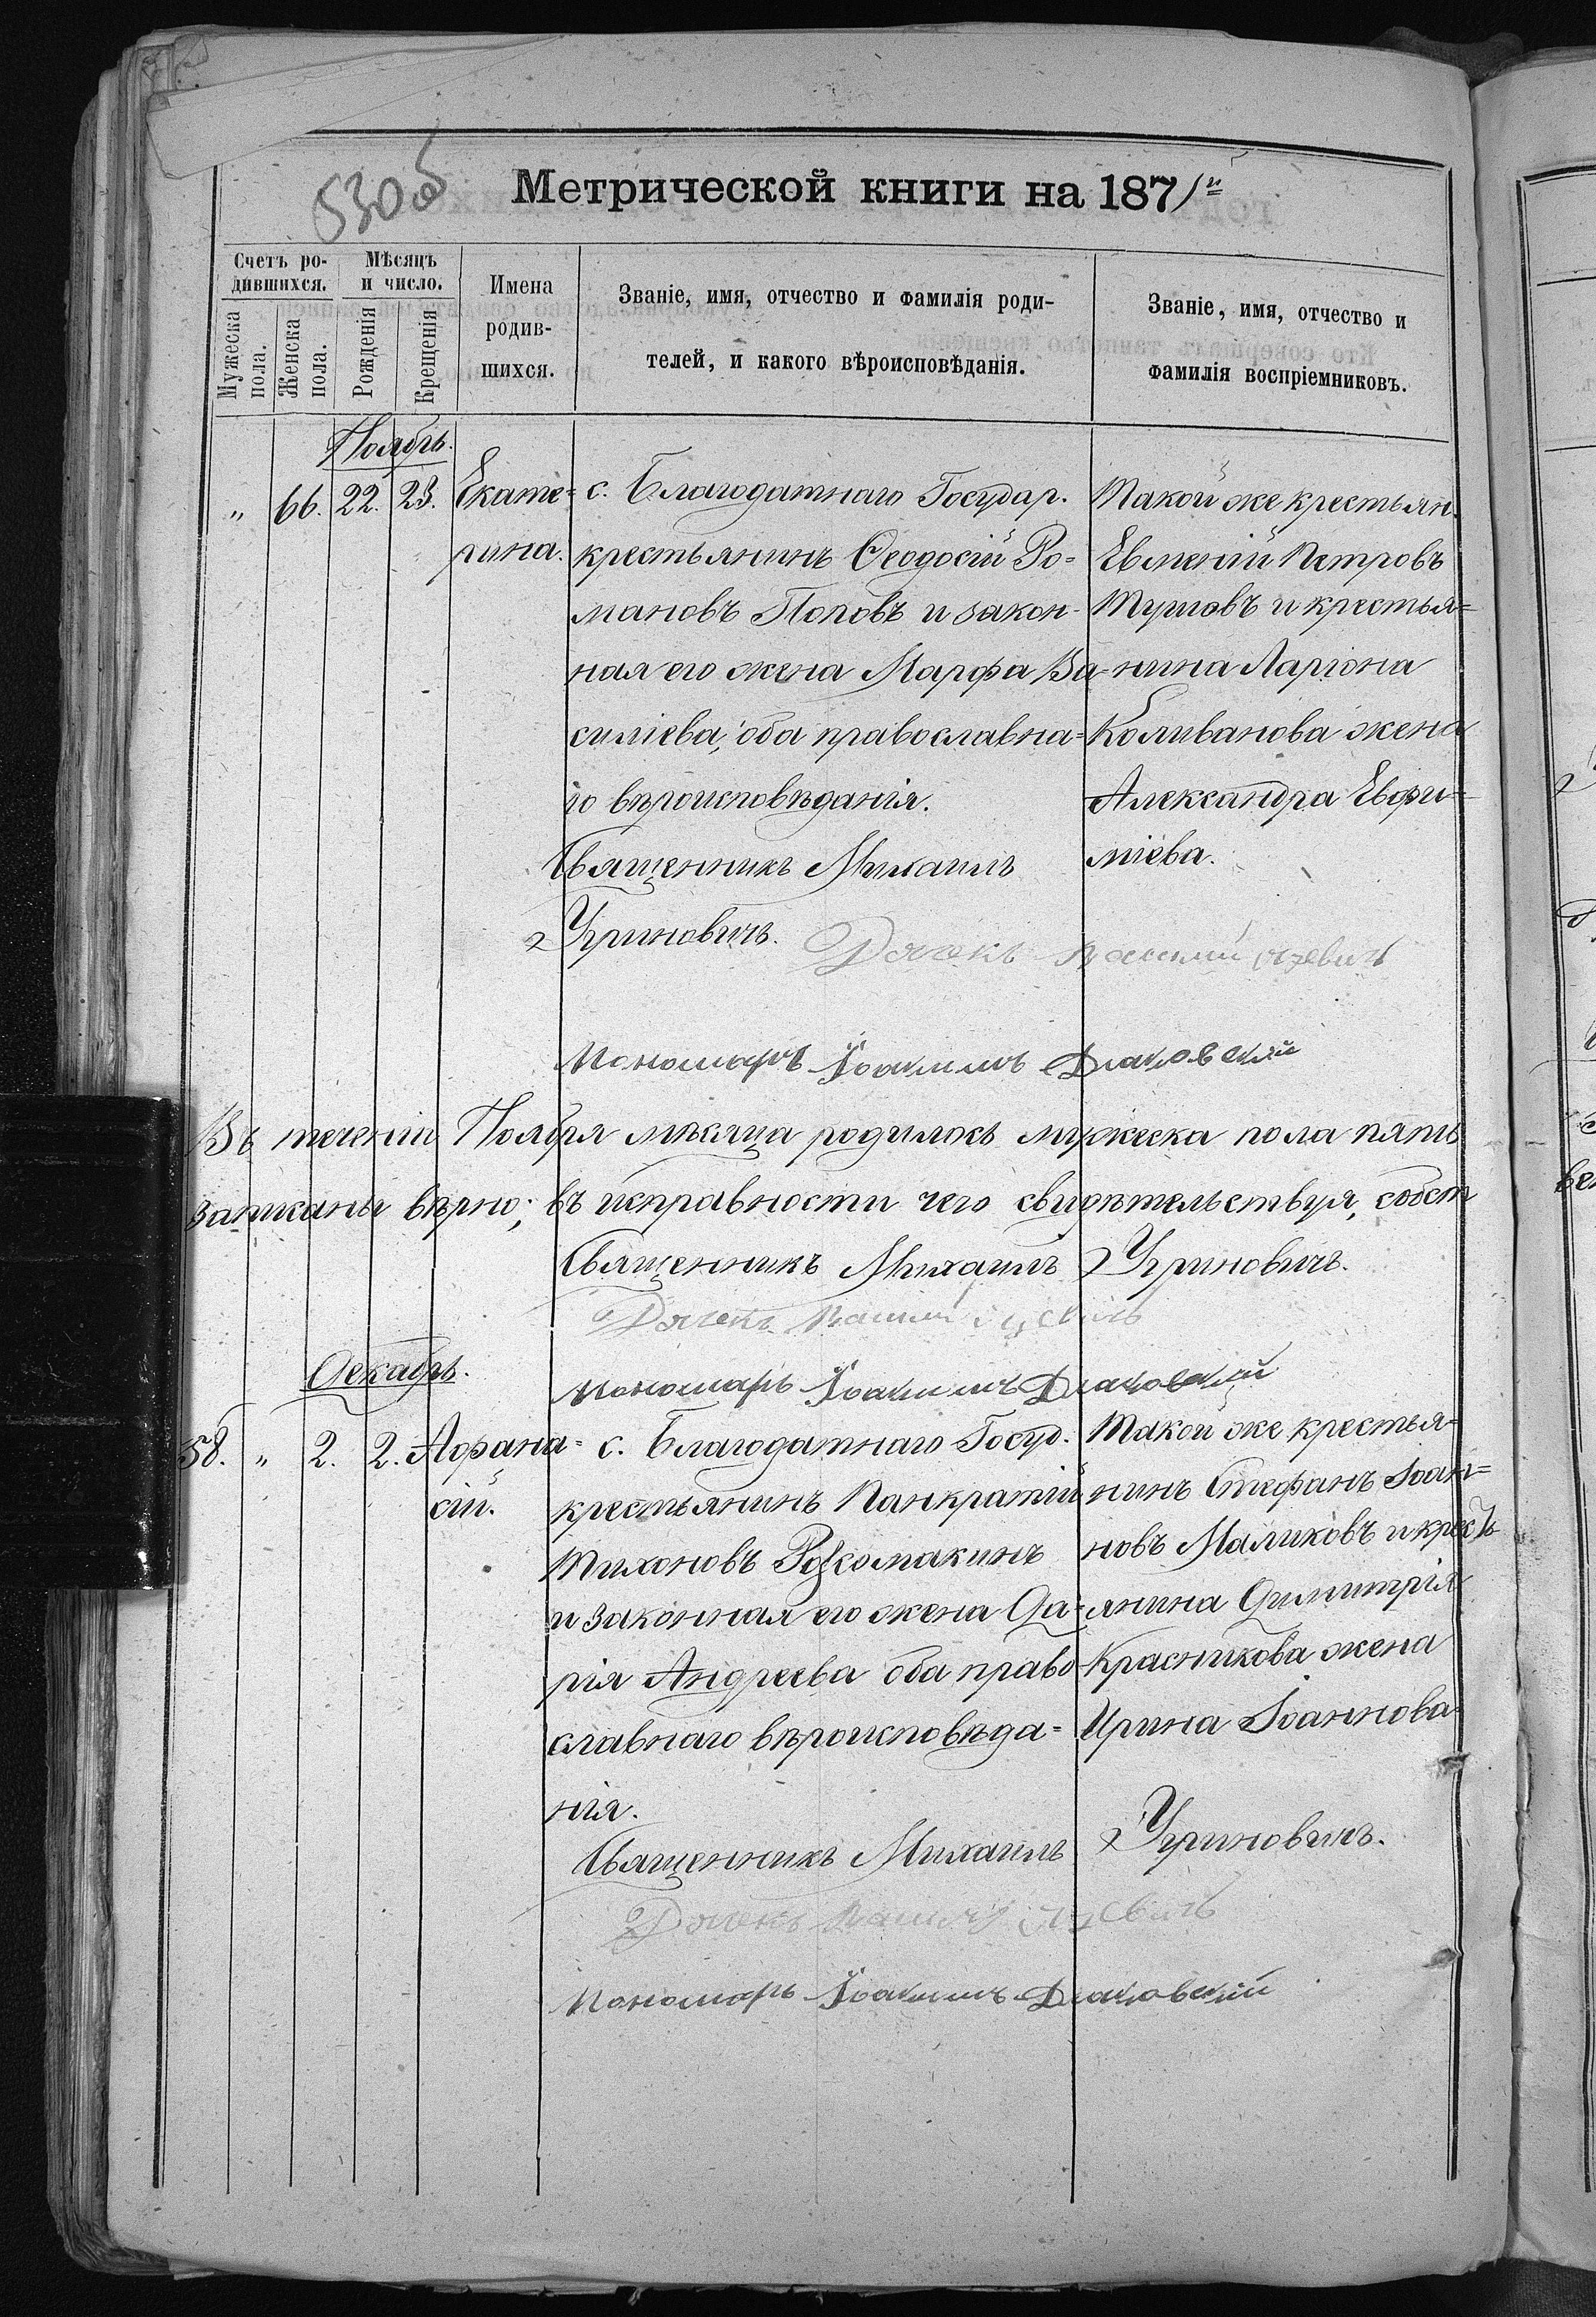 530об
Метрической книги на 1871й
Счетъ ро-
дившихся.
Мѣсяцъ
и число.
Мужеска
пола.
Женска
пола.
Рожденія
Крещенія
Имена
родив-
шихся.
Званіе, имя, отчество и фамилія роди-
телей, и какого вѣроисповѣданія.
Званіе, имя, отчество и
фамилія воспріемниковъ.
Ноябрь.
" 66. 22. 23. Екате=
рина.
с. Благодатнаго Государ.
крестьянинъ Ѳеодосій Ро=
мановъ Поповъ и закон-
ная его жена Марфа Ва-
силіева, оба православна=
го вѣроисповѣданія.
Священникъ Михаилъ
Угриновичъ.
Такой же крестьян.
Евмений Петровъ
и крестья=
нина Ларіона
Коливанова жена
Александра Евфи=
міева.
Дячекъ
Пономарь Іоакимъ Дьяковскій
Въ теченіи Ноября мѣсяца родилось мужеска пола пять
записаны вѣрно; въ исправности чего свидѣтельствуя, собст
Священникъ Михаилъ Угриновичъ.
Дячекъ
Пономарь Іоакимъ Дьяковскій
Декабрь.
58. " 2. 2. Аѳана=
сій.
с. Благодатнаго Госуд.
крестьянинъ Панкратій
Тихоновъ
и законная его жена Да=
рія Андреева оба право-
славнаго вѣроисповѣда=
нія.
Такой же крестья-
нинъ Стефанъ Іоан=
новъ Маликовъ и кресть
янина Димитрія
Красникова жена
Ирина Іоаннова
Священникъ Михаилъ Угриновичъ.
Дячекъ
Пономарь Іоакимъ Дьяковскій